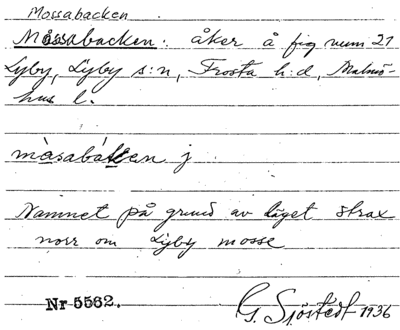 Mossabacken
Mossabacken: åker å fig num 21
Lyby, Lyby s:n, Frosta h:d, Malmö-
hus l.
måsabákken j
Namnet på grund av läget strax
norr om Lyby mosse
Nr 5562.
G. Sjöstedt 1936